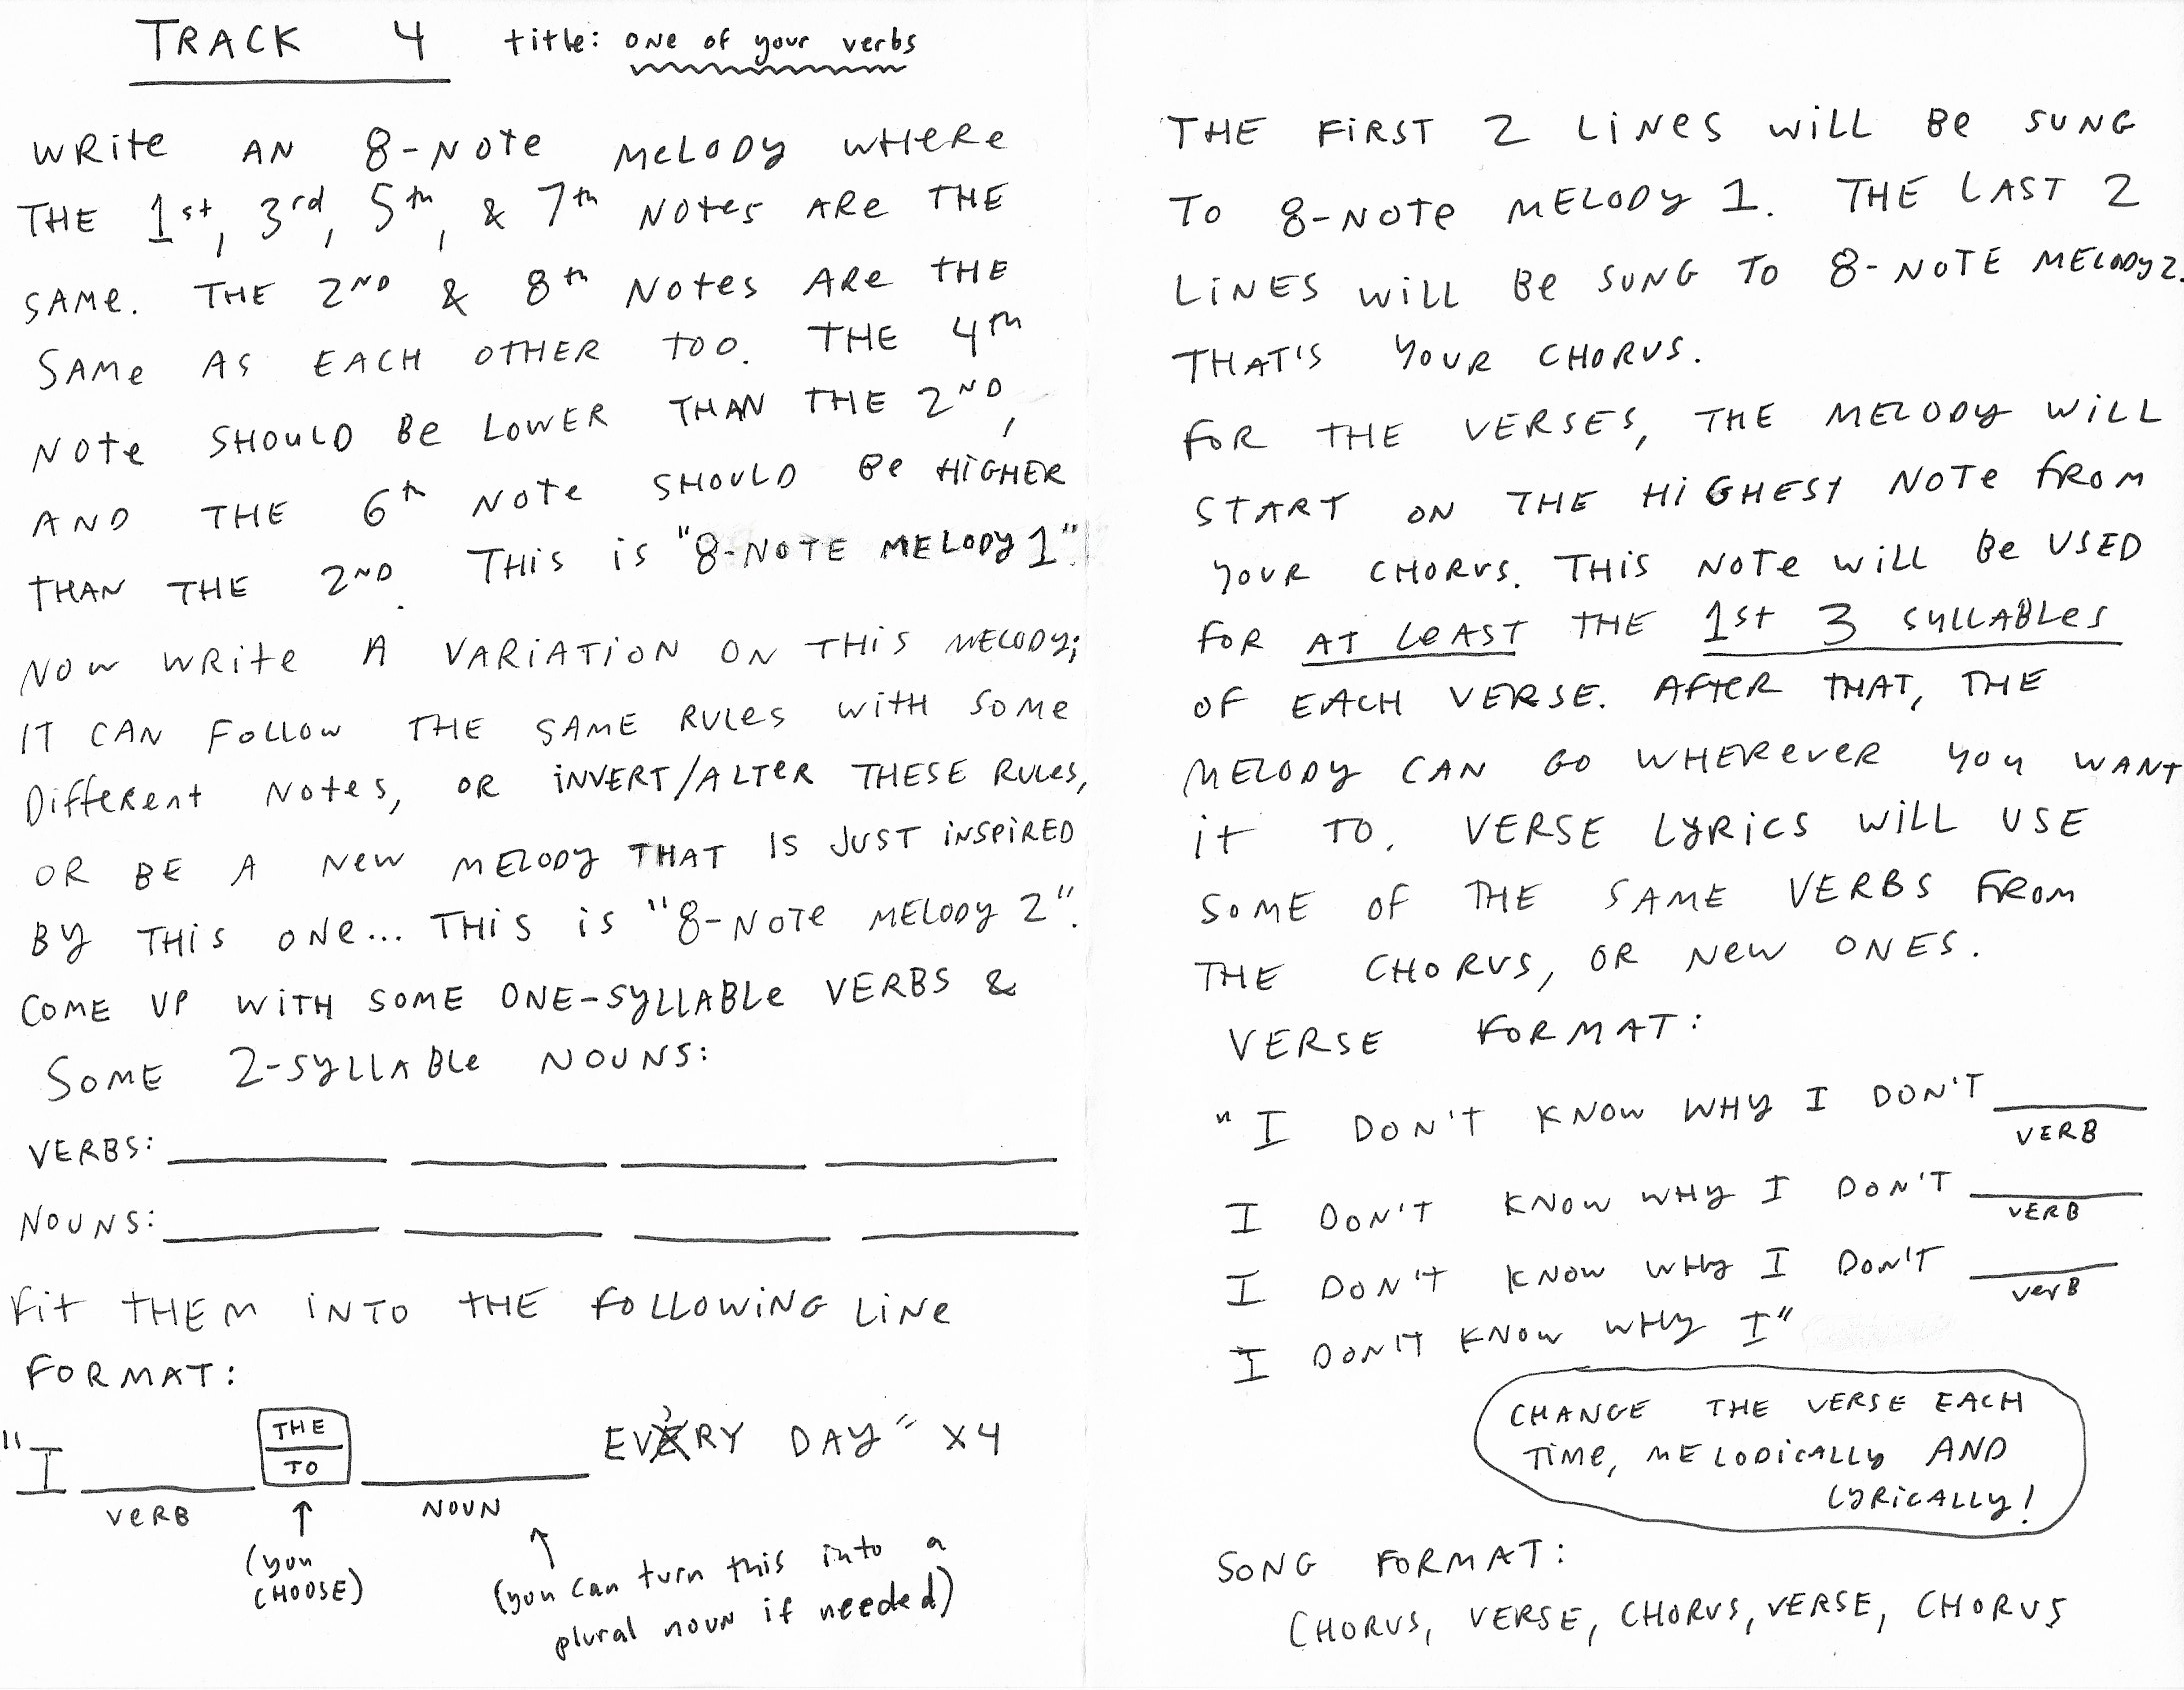 TRACK 4 title: one of your verbs
WRITE AN 8-NOTE MELODY WHERE
THE 1st, 3rd, 5th, & 7th NOTES ARE THE
SAME. THE 2ND & 8th NOTES ARE THE
SAME AS EACH OTHER TOO. THE 4th
NOTE SHOULD BE LOWER THAN THE 2ND,
AND THE 6th NOTE SHOULD BE HIGHER
THAN THE 2ND. THIS is "8-NOTE MELODY 1".
NOW WRITE A VARIATION ON THIS MELODY;
IT CAN FOLLOW THE SAME RULES WITH SOME
DIFFERENT NOTES, OR INVERT/ALTER THESE RULES,
OR BE A NEW MELODY THAT IS JUST INSPIRED
BY THIS ONE... THIS is "8-NOTE MELODY 2".
COME UP WITH SOME ONE-SYLLABLE VERBS &
SOME 2-SYLLABLE NOUNS:
VERBS:
NOUNS:
FIT THEM INTO THE FOLLOWING LINE
FORMAT:
"I THE EVERY DAY" x4
TO
VERB NOUN
(you CHOOSE)
(you can turn this into a
plural noun if needed)
THE FIRST 2 LINES WILL BE SUNG
TO 8-NOTE MELODY 1. THE LAST 2
LINES WILL BE SUNG TO 8-NOTE MELODY 2.
THAT'S YOUR CHORUS.
FOR THE VERSES, THE MELODY WILL
START ON THE HIGHEST NOTE FROM
YOUR CHORUS. THIS NOTE WILL BE USED
FOR AT LEAST THE 1st 3 SYLLABLES
OF EACH VERSE. AFTER THAT, THE
MELODY CAN GO WHEREVER YOU WANT
IT TO. VERSE LYRICS WILL USE
SOME OF THE SAME VERBS FROM
THE CHORUS, OR NEW ONES.
VERSE FORMAT:
"I DON'T KNOW WHY I DON'T
VERB
I DON'T KNOW WHY I DON'T
VERB
I DON'T KNOW WHY I DON'T
VERB
I DON'T KNOW WHY I"
CHANGE THE VERSE EACH
TIME, MELODICALLY AND
LYRICALLY!
SONG FORMAT:
CHORUS, VERSE, CHORUS, VERSE, CHORUS